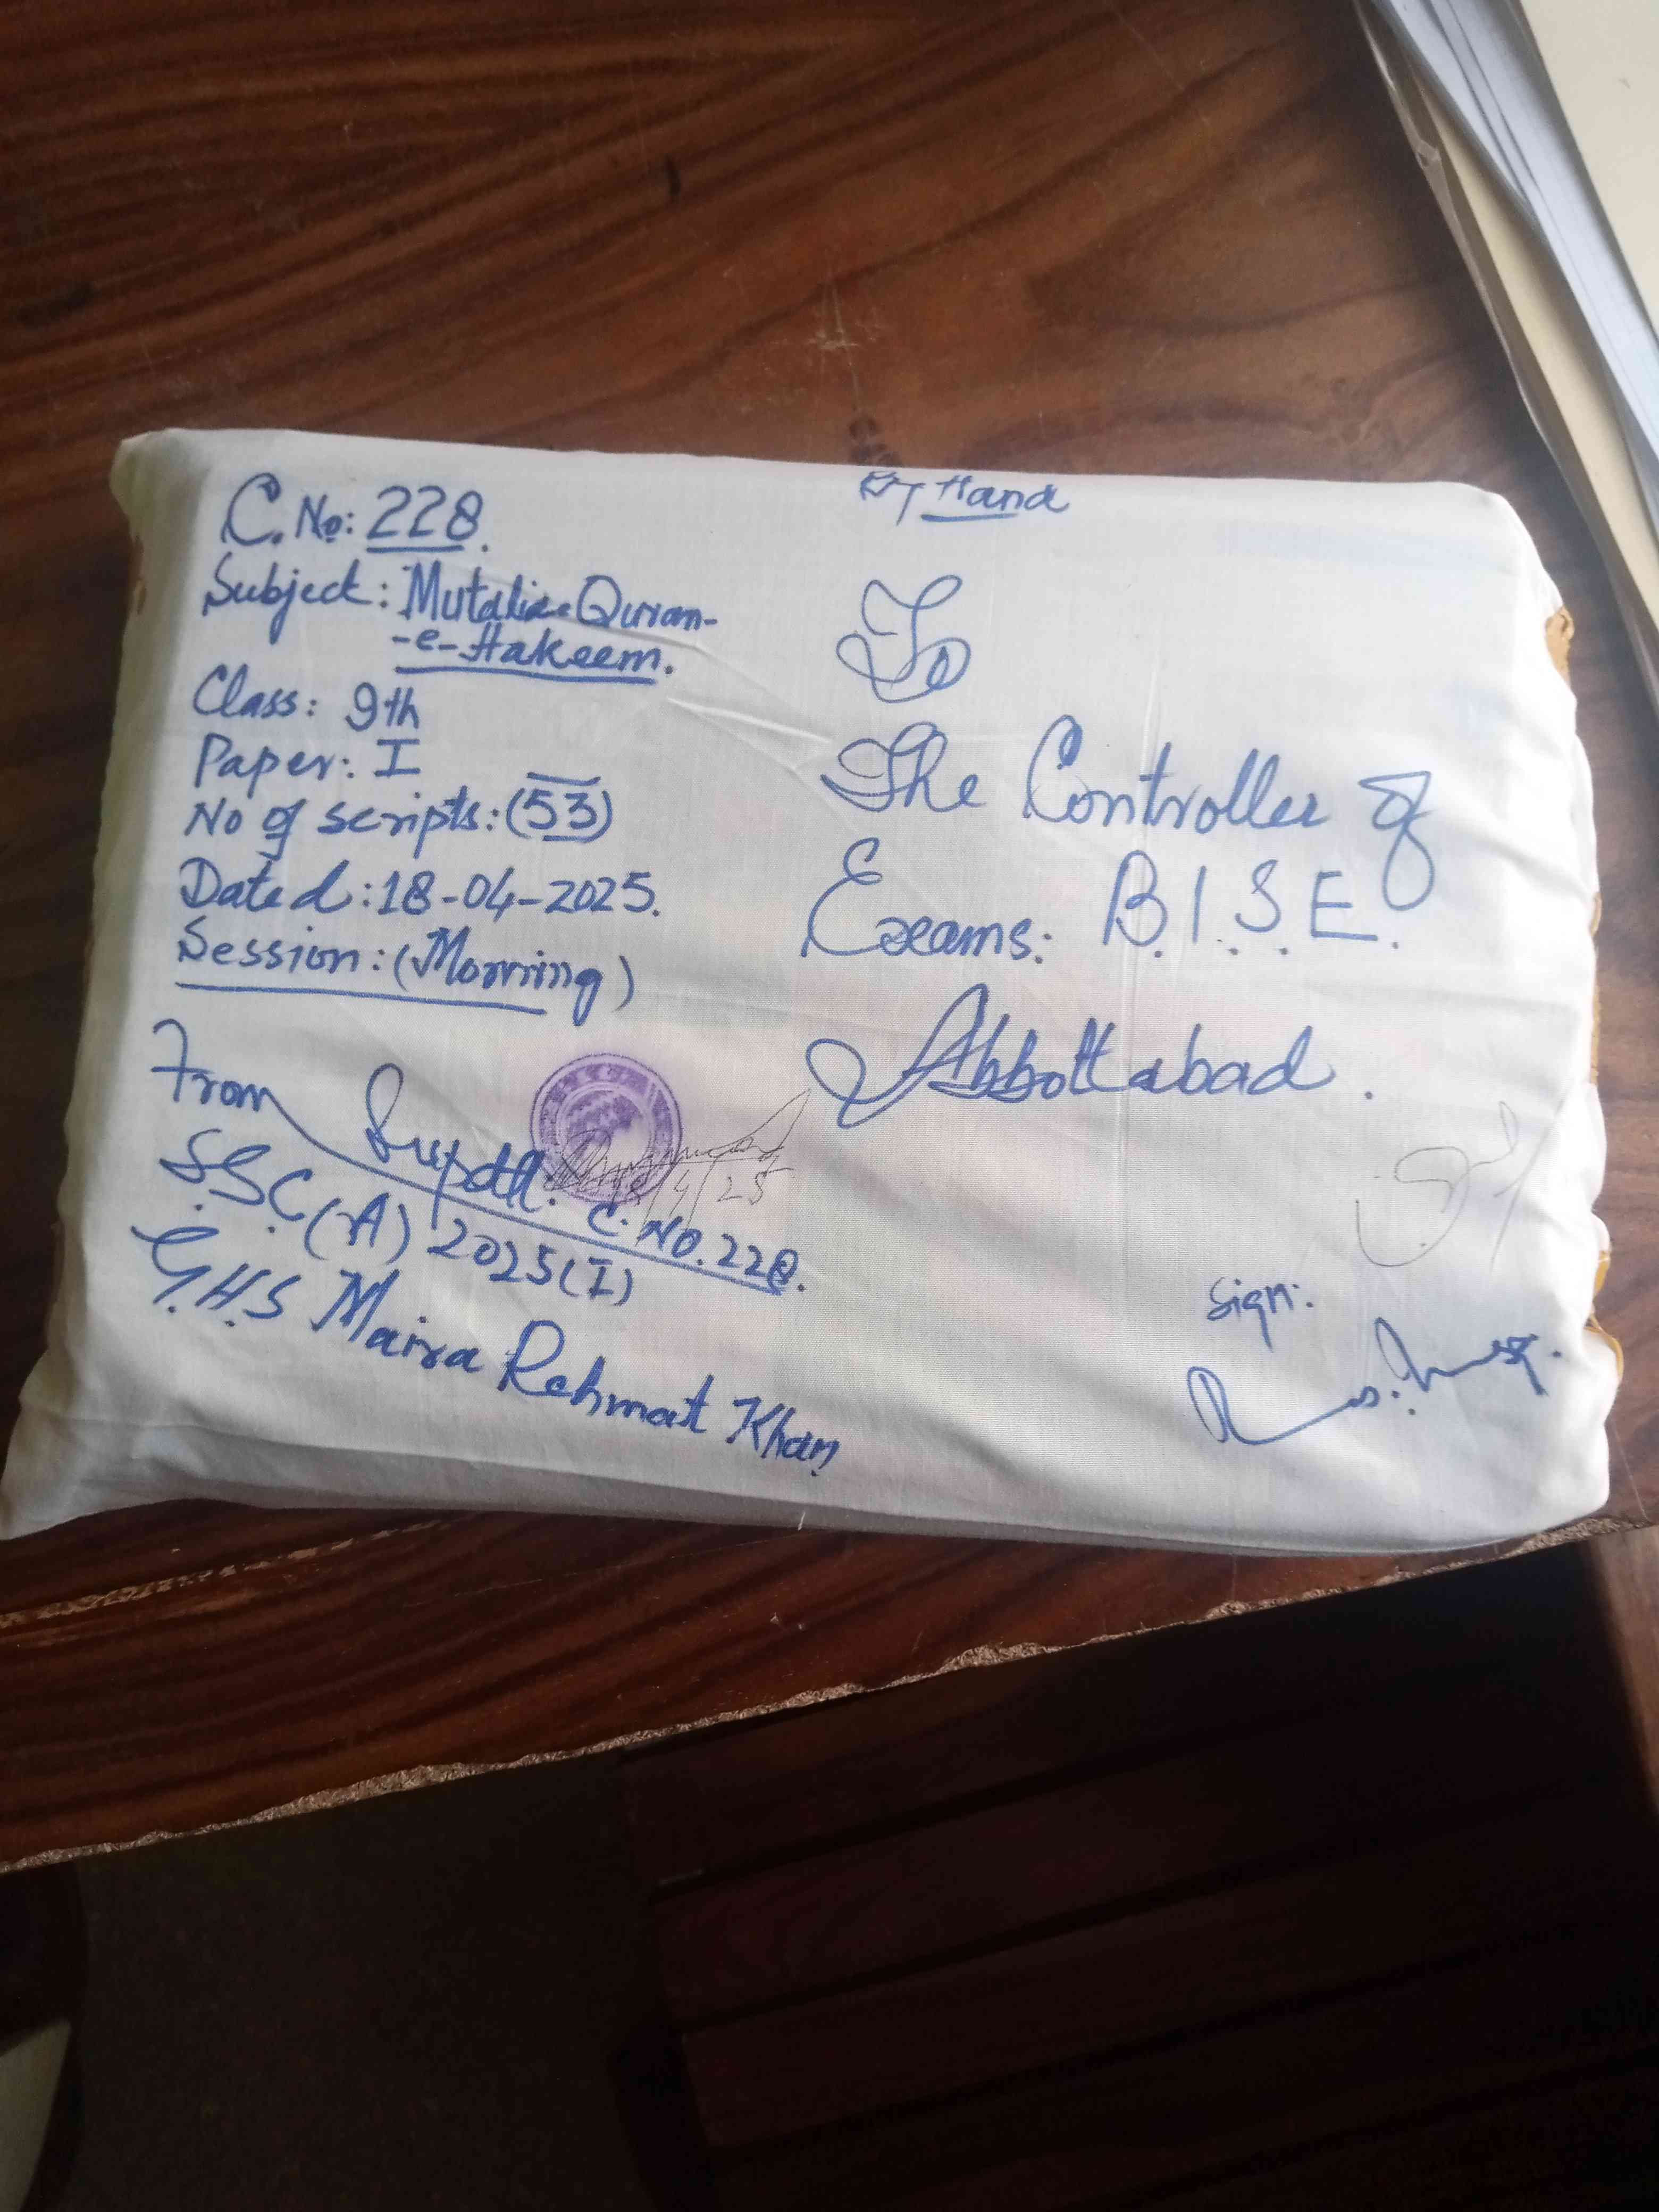 By Hand
C. No: 228.
Subject: Mutalia-e-Quran-
-e-Hakeem.
Class: 9th
Paper: I
No of scripts: (53)
Dated: 18-04-2025.
Session: (Morning)
To
The Controller of
Exams: B.I.S.E.
Abbottabad.
From Supdtt. C. No. 228.
18/4/25
SSC (A) 2025 (I)
G.H.S Maira Rehmat Khan
Sign: